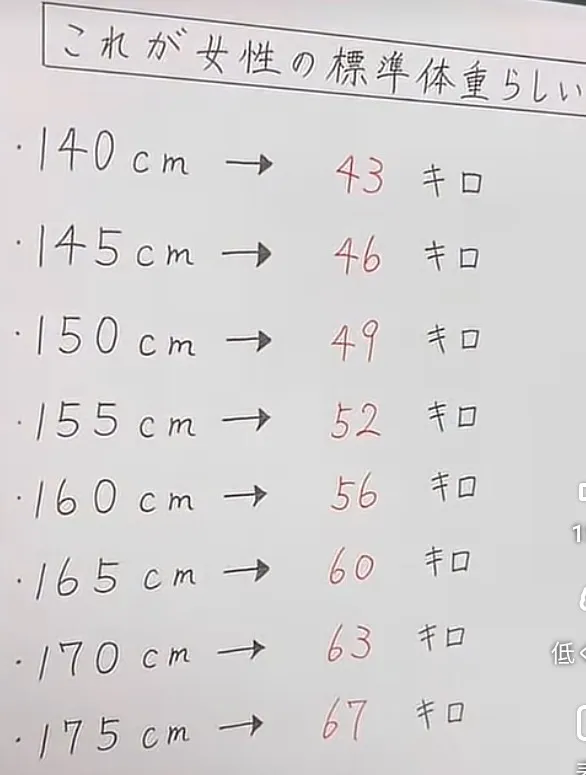 これが女性の標準体重らしい
・140cm → 43 キロ
・145cm → 46 キロ
・150cm → 49 キロ
・155cm → 52 キロ
・160cm → 56 キロ
・165cm → 60 キロ
・170cm → 63 キロ
・175cm → 67 キロ
1
低く